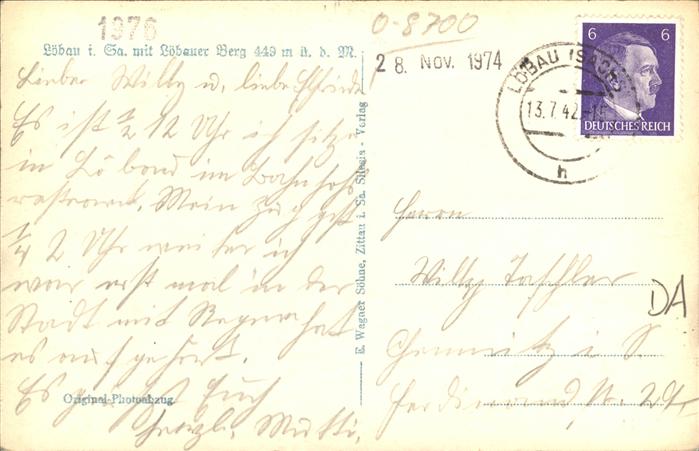 1976
Löbau i. Sa. mit Löbauer Berg 449 m ü. d. M.
Lieber Willy u. liebe
Es ist ½ 12 Uhr ich sitze
in Löbau im Bahnhofs
restaurant. Mein Zug geht
¼ 2 Uhr weiter ich
war erst mal in der
Stadt mit Regen hat
es aufgehört.
Es grüßt Euch
herzl. Mutti.
Original-Photoabzug.
E. Wagner Söhne, Zittau i. Sa. Silesia - Verlag
0-8700
28. NOV. 1974
6 6
DEUTSCHES REICH
LÖBAU (SACHS)
13.7.42
h
Herrn
Willy
Chemnitz i. S.
Ferdinand
DA